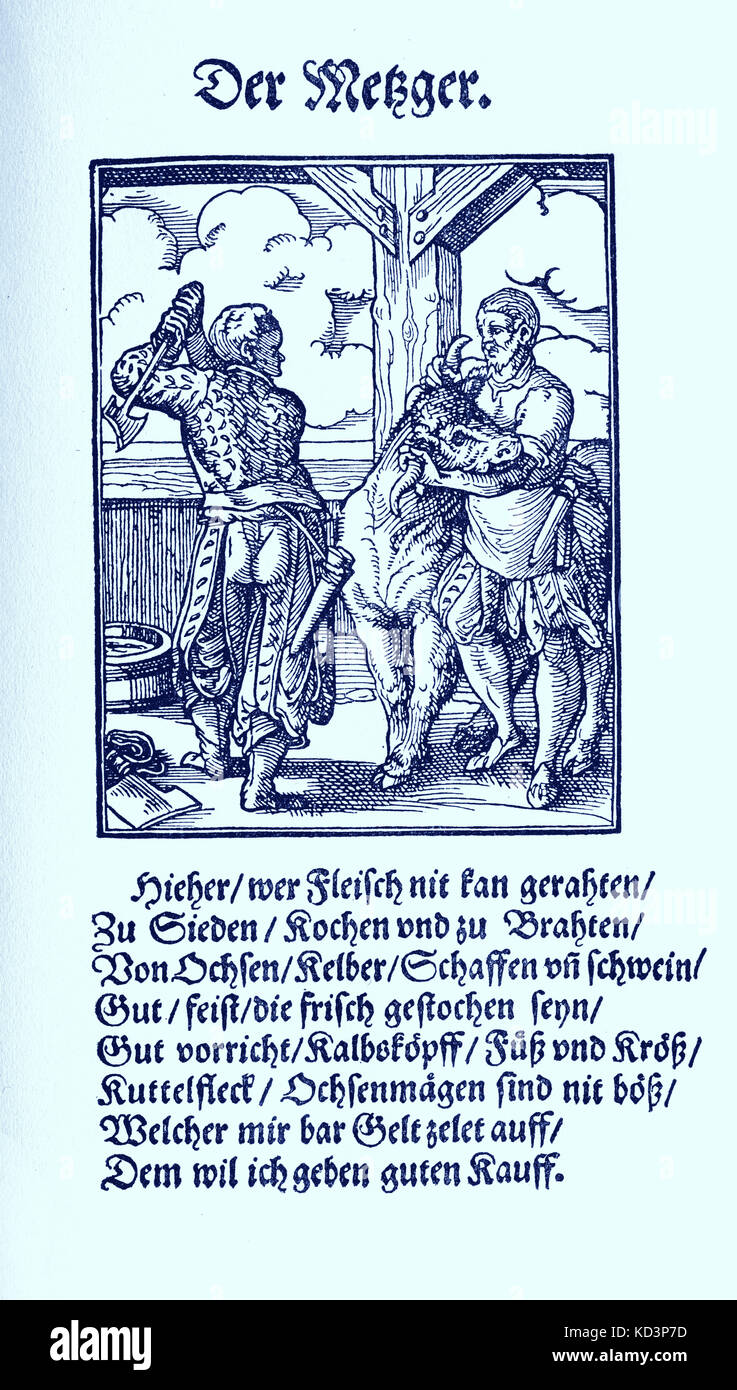 Der Metzger.
Hieher/ wer Fleisch nit kan gerahten/
Zu Sieden/ Kochen vnd zu Brahten/
Von Ochsen/ Kelber/ Schaffen vñ schwein/
Gut/ feist/ die frisch gestochen seyn/
Gut vorricht/ Kalbsköpff/ Füß vnd Kröß/
Kuttelfleck/ Ochsenmägen sind nit böß/
Welcher mir bar Gelt zelet auff/
Dem wil ich geben guten Kauff.
alamy
alamy
alamy
Image ID: KD3P7D
www.alamy.com